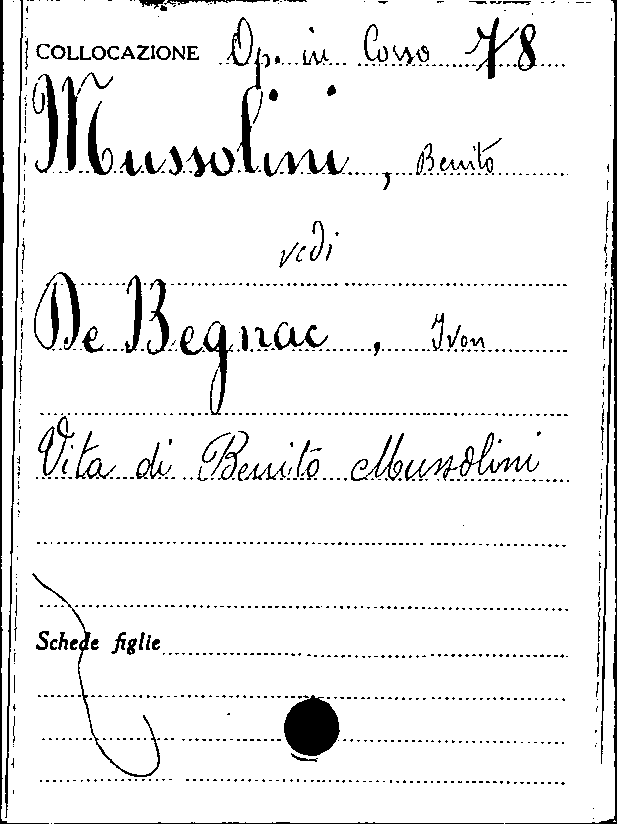 COLLOCAZIONE Op. in Corso 78
Mussolini, Benito
vedi
De Begnac, Ivon
Vita di Benito Mussolini
Schede figlie